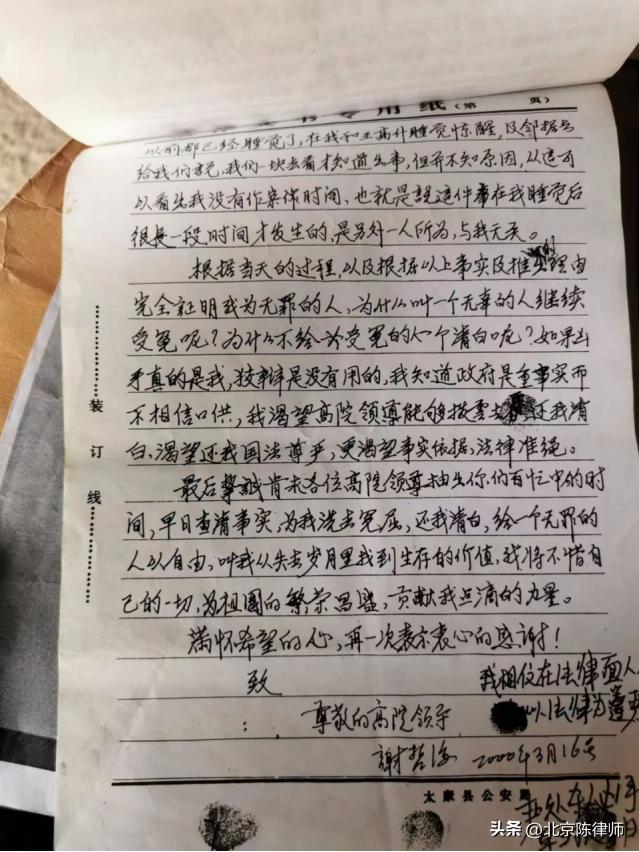 书专用纸(第 页)
以前都已经睡觉了,在我和王高升睡觉惊醒,
给我们说,我们一块去看才知道出事,但并不知原因,从这可
以看出我没有作案作时间、也就是説这件事在我睡觉后
很長一段时间才发生的,是另外一人所为,与我无关。
根据当天的过程,以及根据以上事实及推理由
完全証明我为无罪的人,为什么叫一个无辜的人继续
受冤呢?为什么不给受冤的人个清白呢?如果凶
手真的是我,狡辩是没有用的,我知道政府是重事实而
不相信口供,我渴望高院领导能够拨雲还我清
白,渴望还我国法尊严,更渴望事实依据,法律准绳。
最后挚誠肯求各位高院领导抽出你们百忙中的时
间,早日查清事实,为我洗去冤屈,还我清白,给一个无罪的
人以自由,叫我从失去岁月里找到生存的价值,我将不惜自
己的一切,为祖国的繁荣昌盛,贡献我点滴的力量。
满怀希望的心,再一次表示衷心的感谢!
致
我相仪在法律面人
尊敬的高院领导
以法律为
謝哲海 2000年3月16号
太康县公安局
装
订
线
头条 @北京陈律师